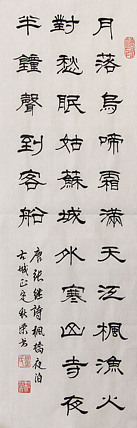 月落烏啼霜滿天江楓漁火
對愁眠姑蘇城外寒山寺夜
半鐘聲到客船
唐張繼詩楓橋夜泊